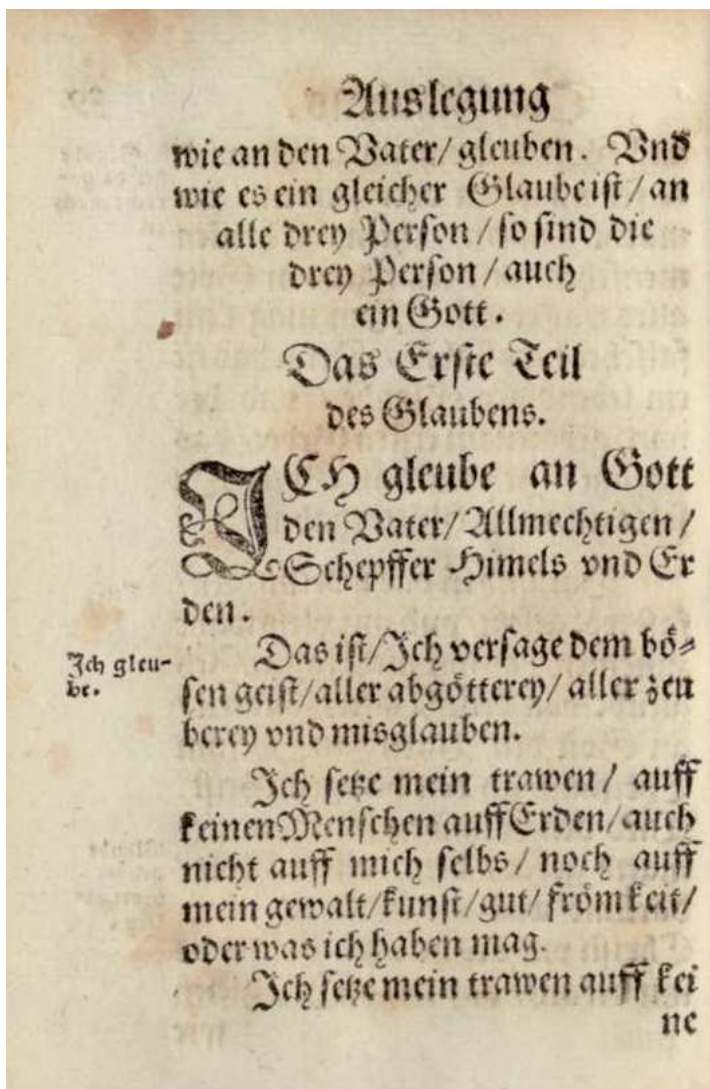 Auslegung
wie an den Vater/ gleuben. Vnd
wie es ein gleicher Glaube ist/ an
alle drey Person/ so sind die
drey Person/ auch
ein Gott.
Das Erste Teil
des Glaubens.
ICH gleube an Gott
den Vater/ Allmechtigen/
Schepffer Himels vnd Er
den.
Ich gleu-
be.
Das ist/ Ich versage dem bö-
sen geist/ aller abgötterey/ aller zeu
berey vnd misglauben.
Ich setze mein trawen/ auff
keinen Menschen auff Erden/ auch
nicht auff mich selbs/ noch auff
mein gewalt/ kunst/ gut/ frömkeit/
oder was ich haben mag.
Ich setze mein trawen auff kei
ne